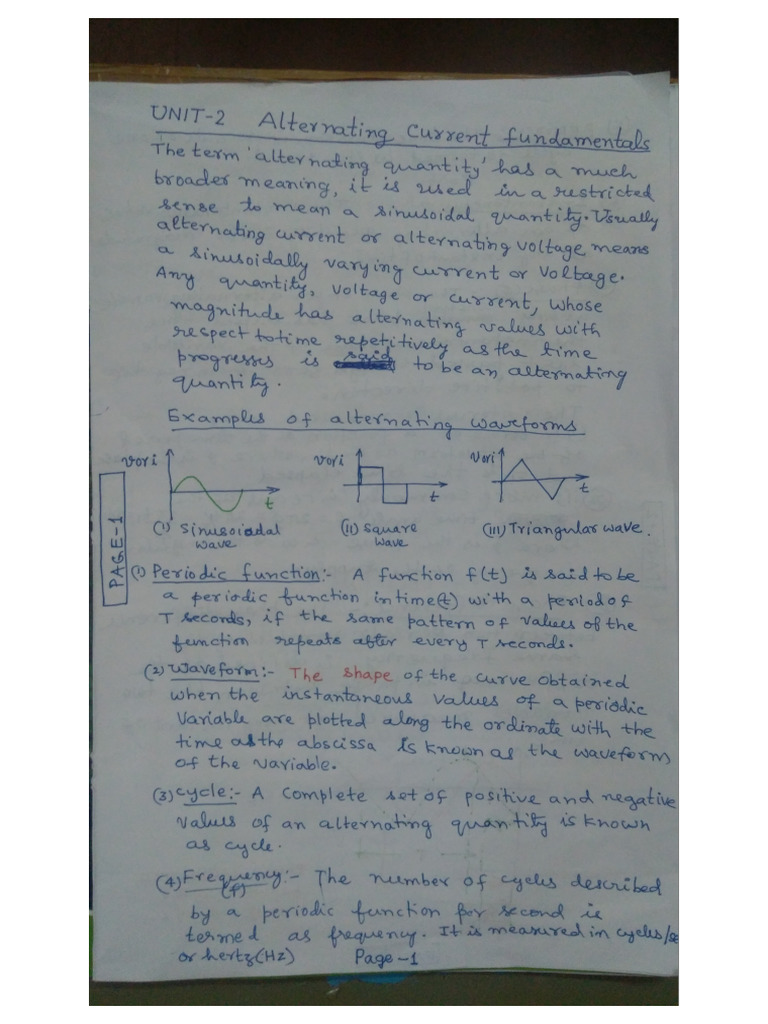 UNIT-2 Alternating Current fundamentals
The term 'alternating quantity' has a much
broader meaning, it is used in a restricted
sense to mean a sinusoidal quantity. Usually
alternating current or alternating voltage means
a sinusoidally varying current or voltage.
Any quantity, voltage or current, whose
magnitude has alternating values with
respect to time repetitively as the time
progresses is said to be an alternating
quantity.
Examples of alternating waveforms
V or i
V or i
V or i
t
t
t
(i) Sinusoiadal
wave
(II) Square
wave
(III) Triangular wave.
PAGE-1
(1) Periodic function:- A function f(t) is said to be
a periodic function in time(t) with a period of
T seconds, if the same pattern of values of the
function repeats after every T seconds.
(2) Waveform:- The shape of the curve obtained
when the instantaneous values of a periodic
variable are plotted along the ordinate with the
time as the abscissa is known as the waveform
of the variable.
(3) Cycle:- A complete set of positive and negative
values of an alternating quantity is known
as cycle.
(4) Frequency:- The number of cycles described
(f)
by a periodic function per second is
termed as frequency. It is measured in cycles/se
or hertz(Hz) Page-1